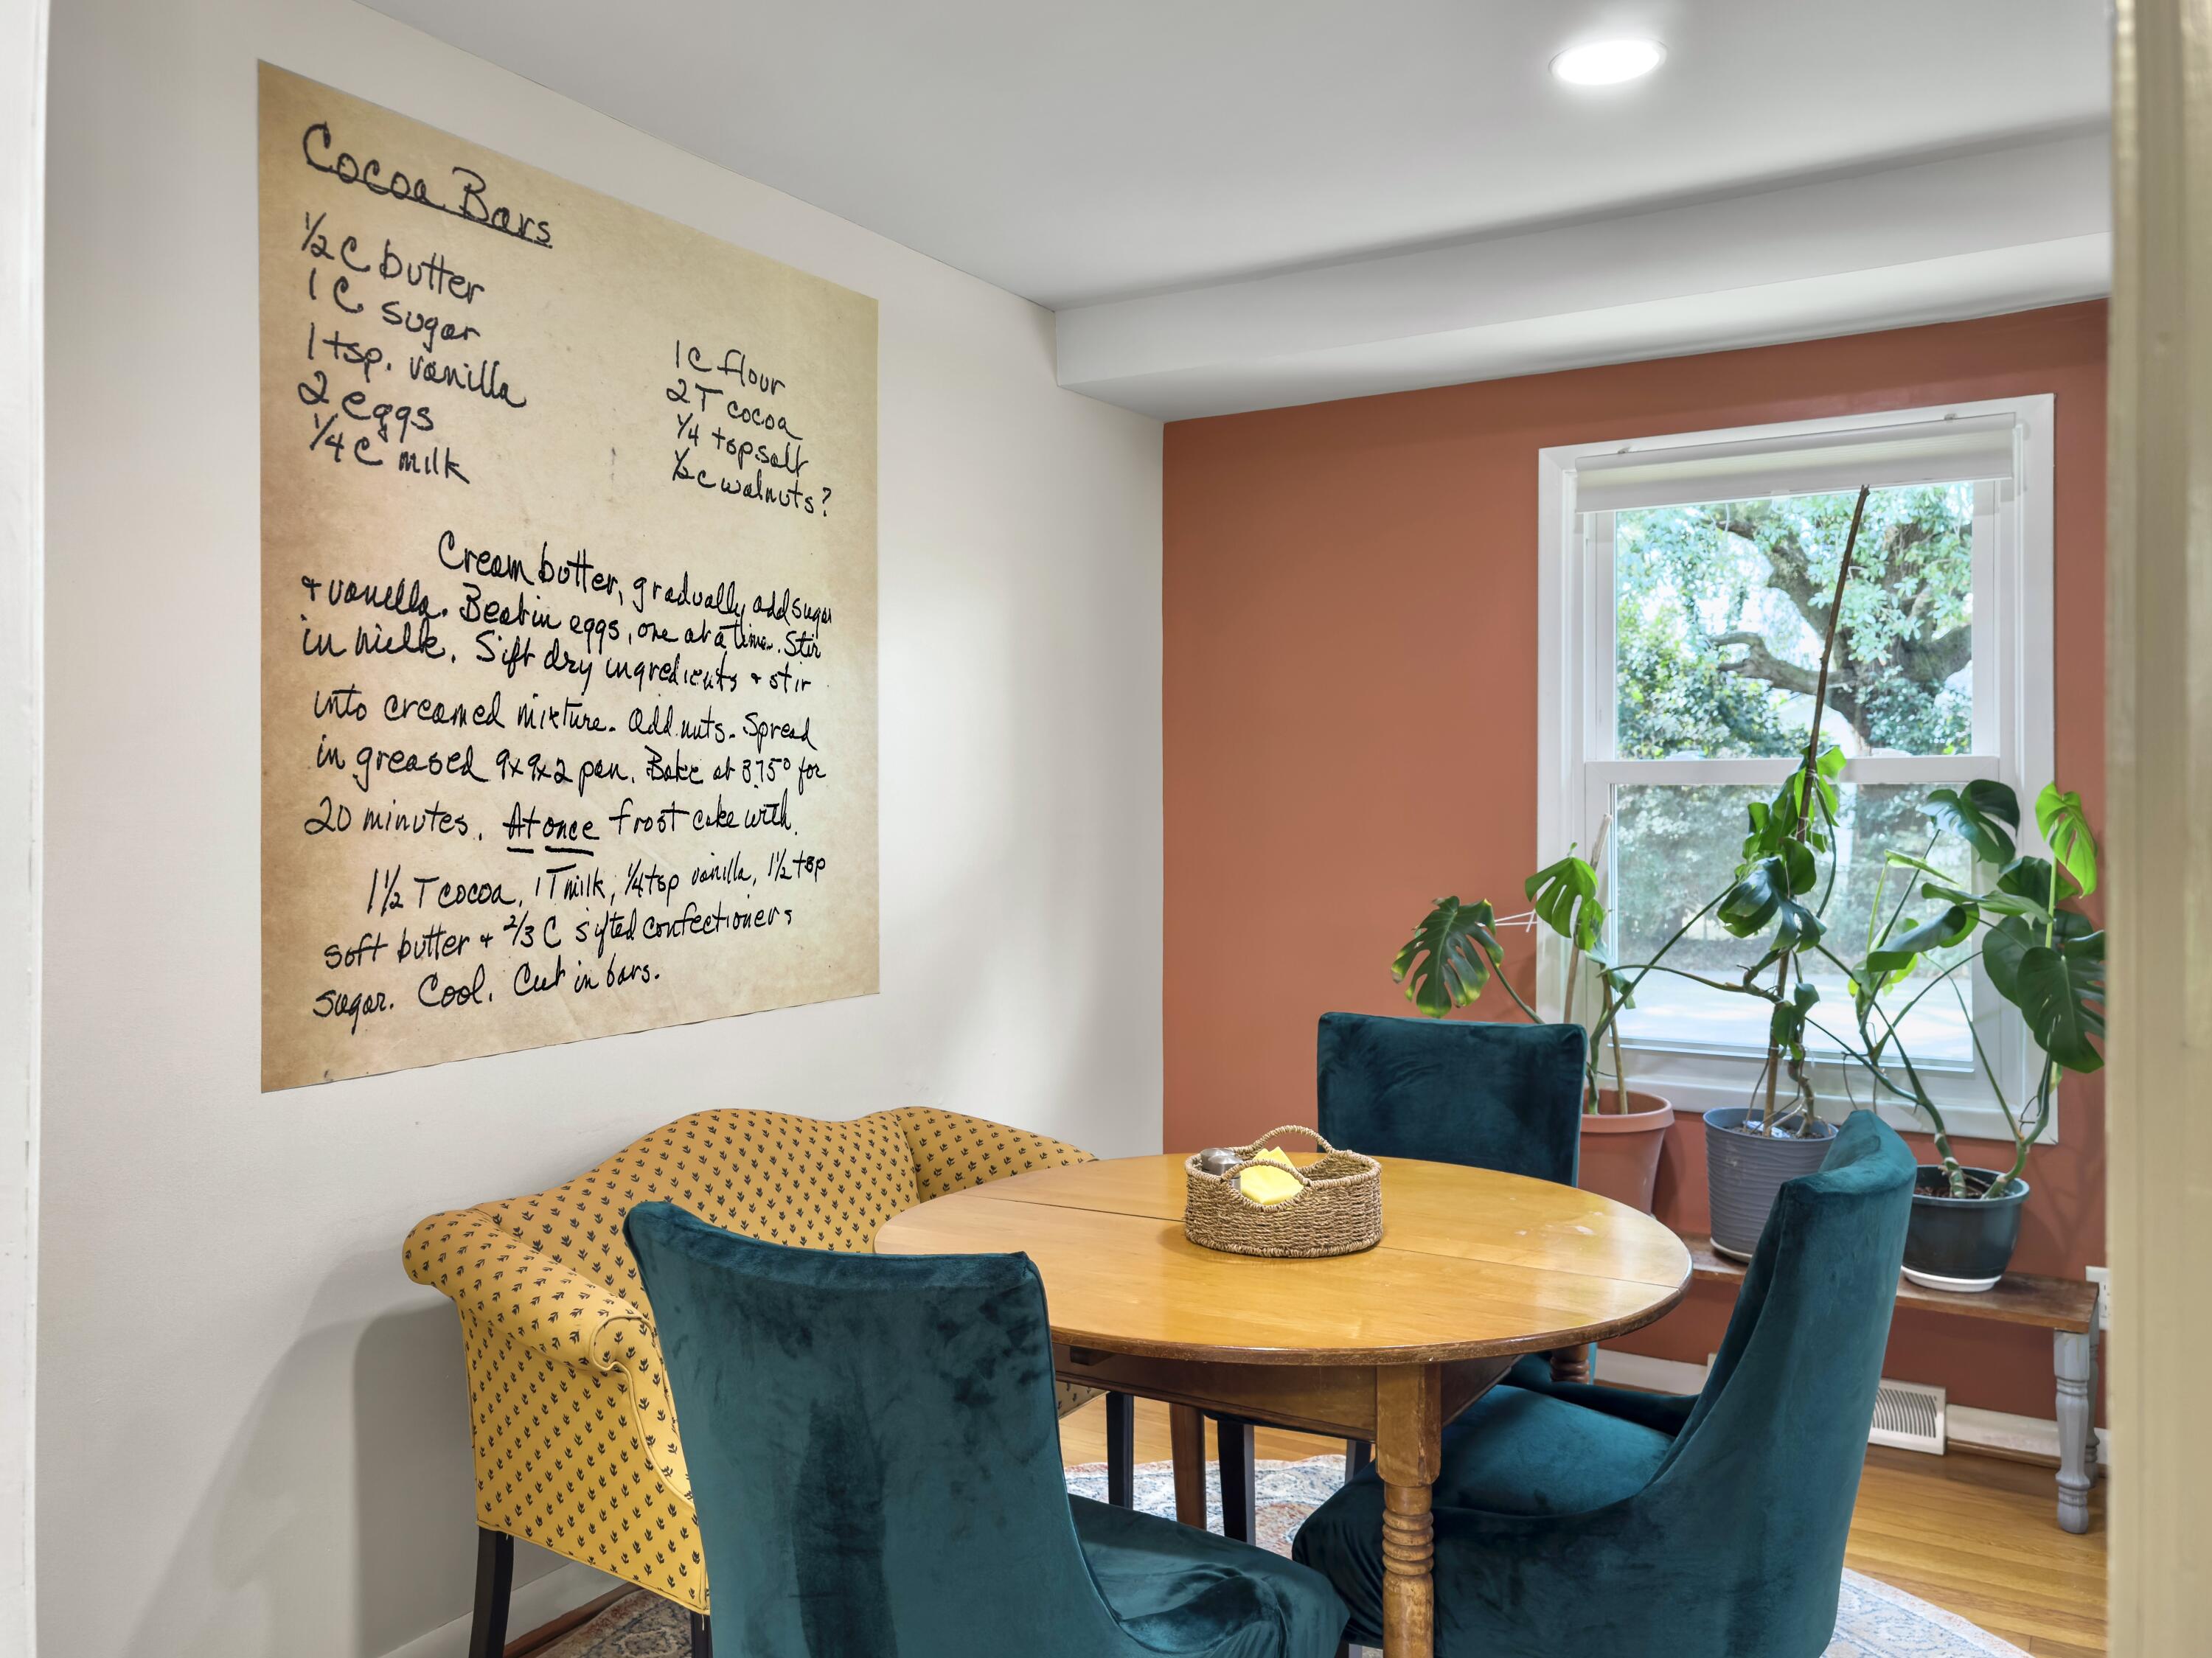 Cocoa Bars
½ C butter
1 C sugar
1 tsp. vanilla
2 eggs
¼ C milk
1 C flour
2 T cocoa
¼ tsp salt
½ C walnuts?
Cream butter, gradually add sugar
+ vanella. Beat in eggs, one at a time. Stir
in milk. Sift dry ingredients + stir
into creamed mixture. Add nuts. Spread
in greased 9x9x2 pan. Bake at 375° for
20 minutes. At once frost cake with
1½ T cocoa, 1 T milk, ¼ tsp vanilla, 1½ tsp
soft butter + 2/3 C sifted confectioners
sugar. Cool. Cut in bars.